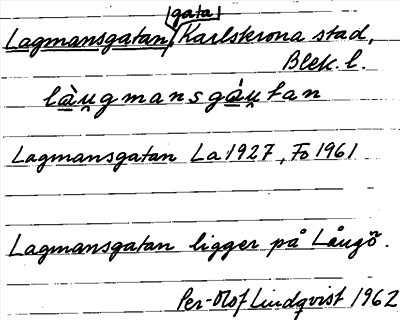 gata
Lagmansgatan, Karlskrona stad,
Blek. l.
là̠u̯gmansga̠̋u̯tan
Lagmansgatan La 1927, Fo 1961
Lagmansgatan ligger på Långö.
Per-Olof Lindqvist 1962